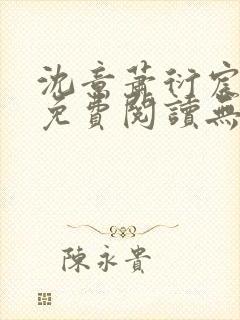 沈章蕭衍宸
免費閱讀無
陳永貴